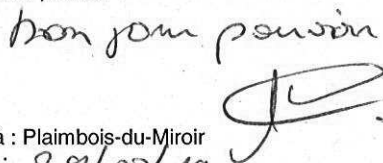 Bon pour pouvoir
à : Plaimbois-du-Miroir